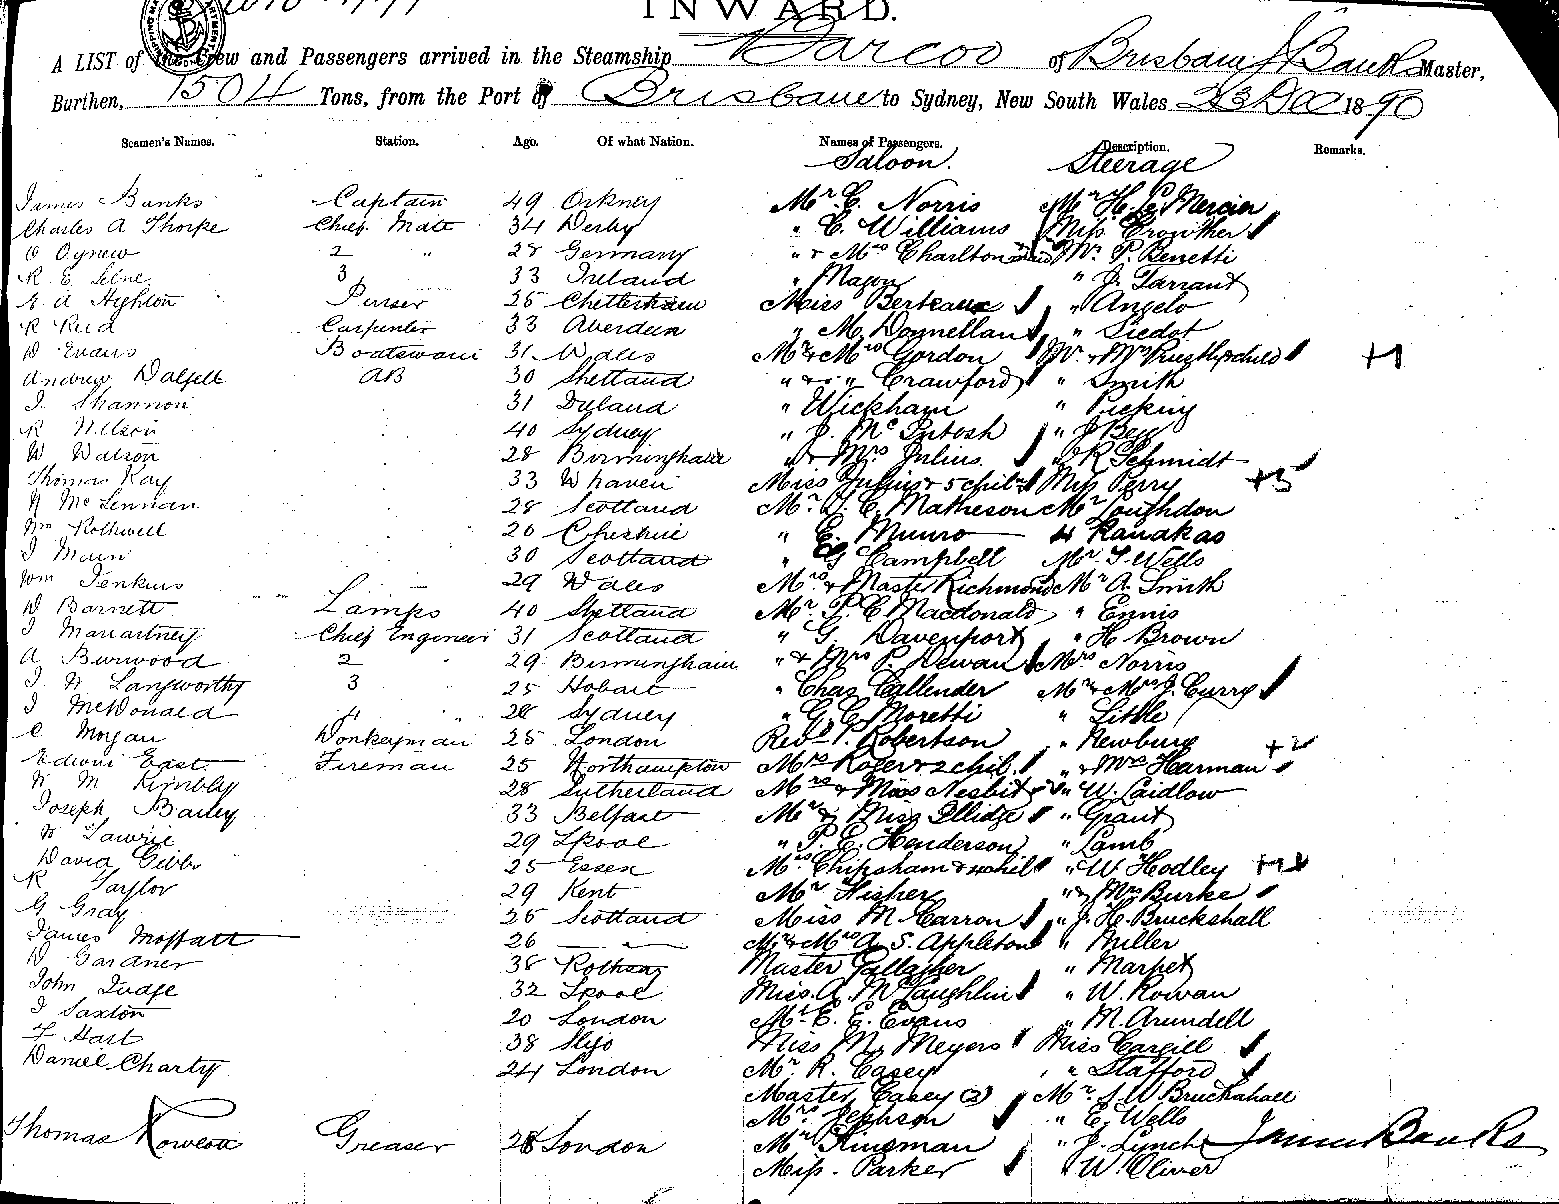 INWARD.
A LIST of the Crew and Passengers arrived in the Steamship Barcoo of Brisbane J Banks Master,
Burthen, 1504 Tons, from the Port of Brisbane to Sydney, New South Wales 23 Dec 1890
Seamen's Names. Station. Age. Of what Nation. Names of Passengers. Description. Remarks.
Saloon. Steerage
James Banks Captain 49 Orkney Mr C. Norris Mr H. Mercier
Charles A Thorpe Chief Mate 34 Derby " C. Williams Miss Crowther
O Ognew 2 " 28 Germany " & Mrs Charlton Mr P. Benetti
R E 3 33 Ireland " Major " J. Tarrant
E A Highton Purser 25 Cheltenham Miss Berteaux " Angelo
R Reid Carpenter 33 Aberdeen " M. Donnellan " Liedot
D Evans Boatswain 31 Wales Mr & Mrs Gordon Mr & Mrs Priestly & child +1
Andrew Dalzell AB 30 Shetland " & " Crawford " Smith
J Shannon 31 Ireland " Wickham " Picking
R Wilson 40 Sydney " J. McIntosh " J Bey
W Watson 28 Birmingham " & Mrs Julius " R Schmidt
Thomas Kay 33 Whaven Miss Julius & 5 chil. Miss Perry +5
N McLennan 28 Scotland Mr D. C. Matheson Mr Loughdon
Wm Rothwell 26 Cheshire " E. Munro 4 Kanakas
J Main 30 Scotland " G Campbell Mr. T. Wells
Wm Jenkins 29 Wales Mrs & Master Richmond Mr A. Smith
D Barnett Lamps 40 Shetland Mr. P. C. Macdonald " Ennis
J Macartney Chief Engineer 31 Scotland " G. Davenport " H Brown
A Burwood 2 " 29 Birmingham " & Mrs P. Dewan Mrs Norris
J W Langworthy 3 25 Hobart " Chas Callender Mr & Mrs J. Curry
J McDonald 4 " 28 Sydney " G. C. Moretti " Little
C Morgan Donkeyman 25 London Revd P. Robertson " Newburg
Edwin East Fireman 25 Northampton Mrs Roger & 2 chil. " & Mrs Harman +2
W M Kimbley 28 Sutherland Mrs & Miss Nesbit " W. Laidlow
Joseph Bailey 33 Belfast Mr & Miss Ellidge " Grant
W Lawrie 29 Lpool " P. E. Henderson " Lamb
David Gibbs 25 Essex Mrs Chipsham & 4 chil " W Hodley
R Taylor 29 Kent Mr Fisher " & Mrs Burke
G Gray 26 Scotland Miss M Carron " J. H. Bruckshall
James Moffatt 26 Mr & Mrs A. S. Appleton " Miller
D Gardner 38 Rothsay Master Gallagher " Marpet
John Judge 32 Lpool Miss A. McLaughlin " W. Rowan
J Saxton 20 London Mr E. E. Evans " M. Arundell
F Hart 38 Sligo Miss M. Meyers Miss Cargill
Daniel Charty 24 London Mr R. Casey " Stafford
Master Casey (2) Mr. J. W Bruckshall
Mrs Jephson " E. Wells
Thomas Rowlett Greaser 28 London Mr Kingman " J. Lynch James Banks
Miss Parker " W. Oliver